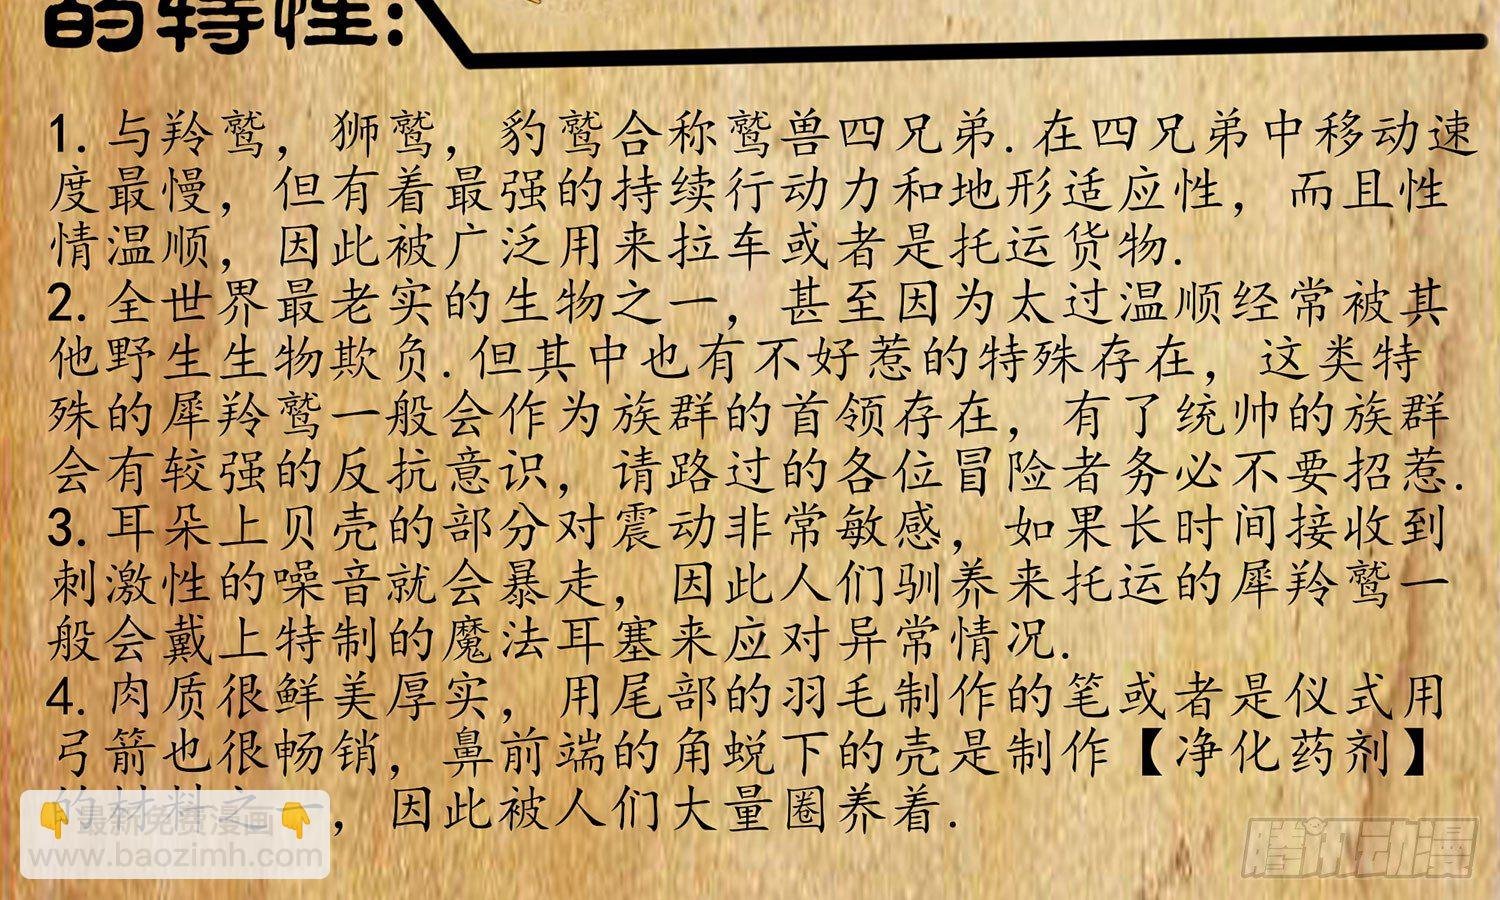 的特性:
1. 与羚鹫，狮鹫，豹鹫合称鹫兽四兄弟.在四兄弟中移动速
度最慢，但有着最强的持续行动力和地形适应性，而且性
情温顺，因此被广泛用来拉车或者是托运货物.
2. 全世界最老实的生物之一，甚至因为太过温顺经常被其
他野生生物欺负.但其中也有不好惹的特殊存在，这类特
殊的犀羚鹫一般会作为族群的首领存在，有了统帅的族群
会有较强的反抗意识，请路过的各位冒险者务必不要招惹.
3. 耳朵上贝壳的部分对震动非常敏感，如果长时间接收到
刺激性的噪音就会暴走，因此人们驯养来托运的犀羚鹫一
般会戴上特制的魔法耳塞来应对异常情况.
4. 肉质很鲜美厚实，用尾部的羽毛制作的笔或者是仪式用
弓箭也很畅销，鼻前端的角蜕下的壳是制作【净化药剂】
的材料之一，因此被人们大量圈养着.
👇最新免费漫画👇
www.baozimh.com
腾讯动漫